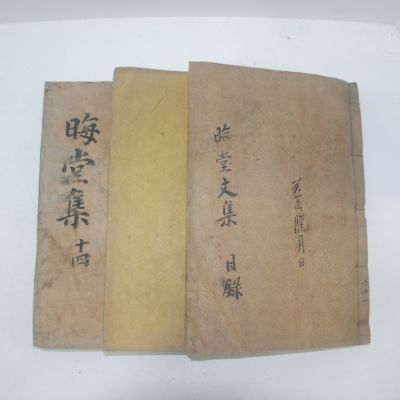 晦堂集
十四
晦堂文集
目錄
月日